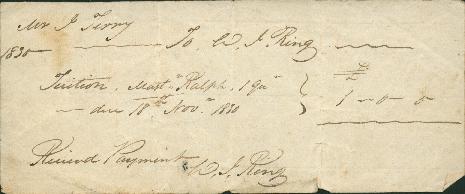 Mr J Terry
1830 To W. J. King
£
Tuition, Mastr Ralph, 1 Qr 1 - 0 0
due 18th Novr 1830
Received Payment W. J. King